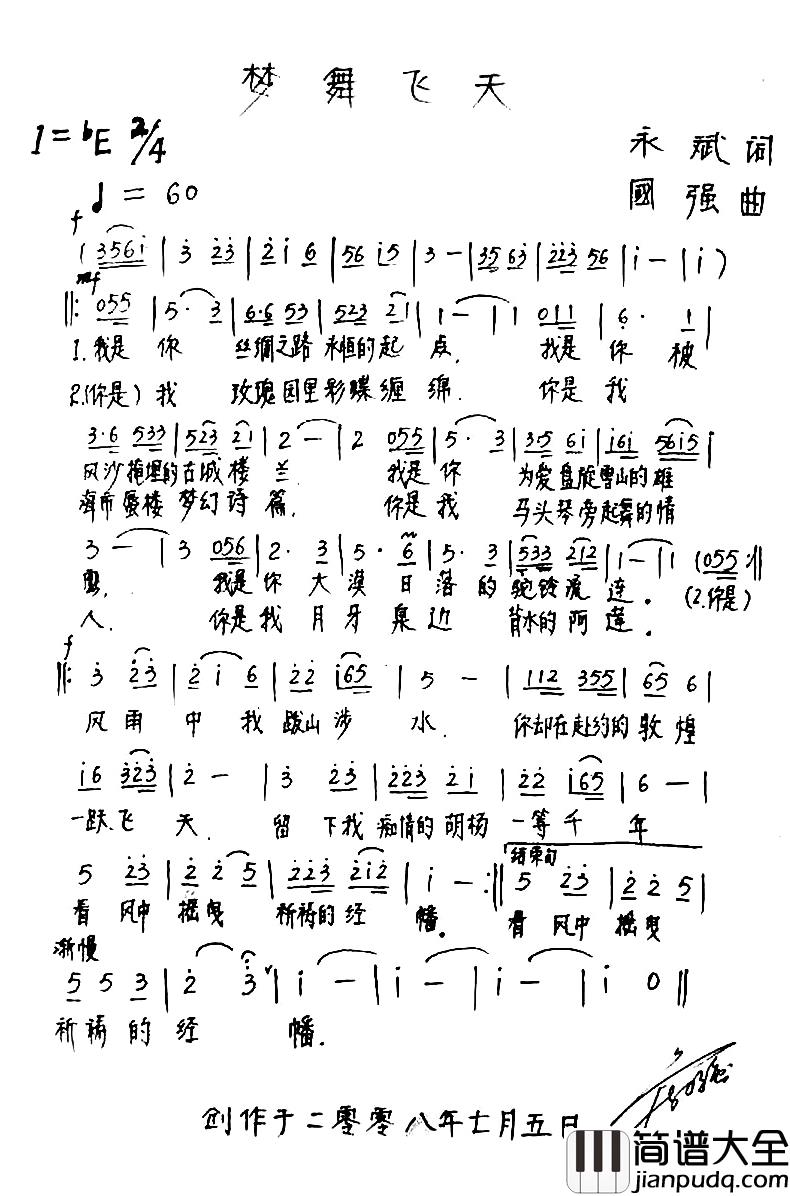 梦舞飞天
1=bE 2/4
永斌词
♩=60
國强曲
f
1 3561 | 3 23 | 2 1 6 | 56 15 | 3 - | 35 63 | 23 56 | i - | i )
mf
‖: 055 | 5· 3 | 6·6 53 | 523 21 | 1 - | 1 011 | 6· 1 |
1.我是你 丝绸之路永恒的起点. 我是你被
2.(你是)我 玫瑰园里彩蝶缠绵. 你是我
3·6 533 | 523 21 | 2 - | 2 055 | 5· 3 | 35 6i | i6i 56i5 |
风沙掩埋的古城楼兰. 我是你 为爱盘旋雪山的雄
海市蜃楼梦幻诗篇. 你是我 马头琴旁起舞的情
3 - | 3 056 | 2· 3 | 5· 6 | 5· 3 | 533 212 | 1 - | 1 (055 :‖
鹰. 我是你大漠日落的驼铃流连。
人. 你是我月牙泉边背水的阿莲。
(2.你是)
f
‖: 3 23 | 2 i 6 | 22 i65 | 5 - | 112 355 | 65 6 |
风雨中我跋山涉水. 你却在赴约的敦煌
i6 323 | 2 - | 3 23 | 223 2i | 22 i65 | 6 - |
一跃飞天. 留下我痴情的胡杨一等千年
结束句
5 23 | 2 2 5 | 223 2i2 | i - :‖ 5 23 | 2 2 5 |
看风中摇曳 祈祷的经幡。 看风中摇曳
渐慢
5 5 3 | 2 3 | i - | i - | i - | i 0 ‖
祈祷的经幡.
创作于二零零八年七月五日
简谱大全
jianpudq.com